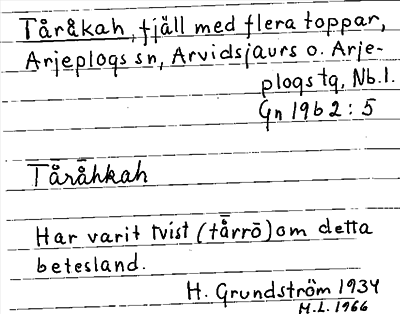 Tåråkah, fjäll med flera toppar,
Arjeplogs sn, Arvidsjaurs o. Arje-
plogs tg, Nb.l.
Gn 19b 2 : 5
Tåråhkah
Har varit tvist (tårrō) om detta
betesland.
H. Grundström 1934
M.L. 1966